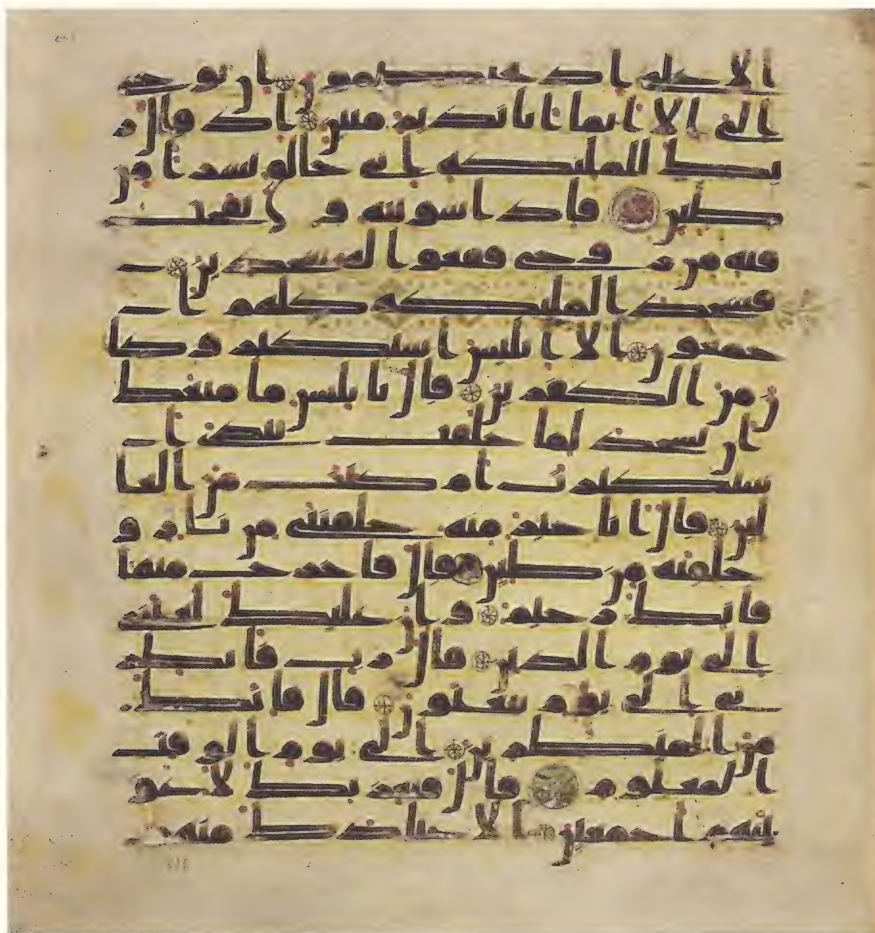 الاعلى اذ يختصمون ان يوحى
الى الا انما انا نذير مبين اذ قال ر
بك للملئكة انى خالق بشرا من
طين فاذا سويته و نفخت
فيه من روحى فقعوا له سجدين
فسجد الملئكة كلهم ا
جمعون الا ابليس استكبر وكا
ن من الكفرين قال يابليس ما منعك
ان تسجد لما خلقت بيدى ا
ستكبرت ام كنت من العا
لين قال انا خير منه خلقتنى من نار و
خلقته من طين قال فاخرج منها
فانك رجيم وان عليك لعنتى
الى يوم الدين قال رب فانظر
نى الى يوم يبعثون قال فانك
من المنظرين الى يوم الوقت
المعلوم قال فبعزتك لاغو
ينهم اجمعين الا عبادك منهم